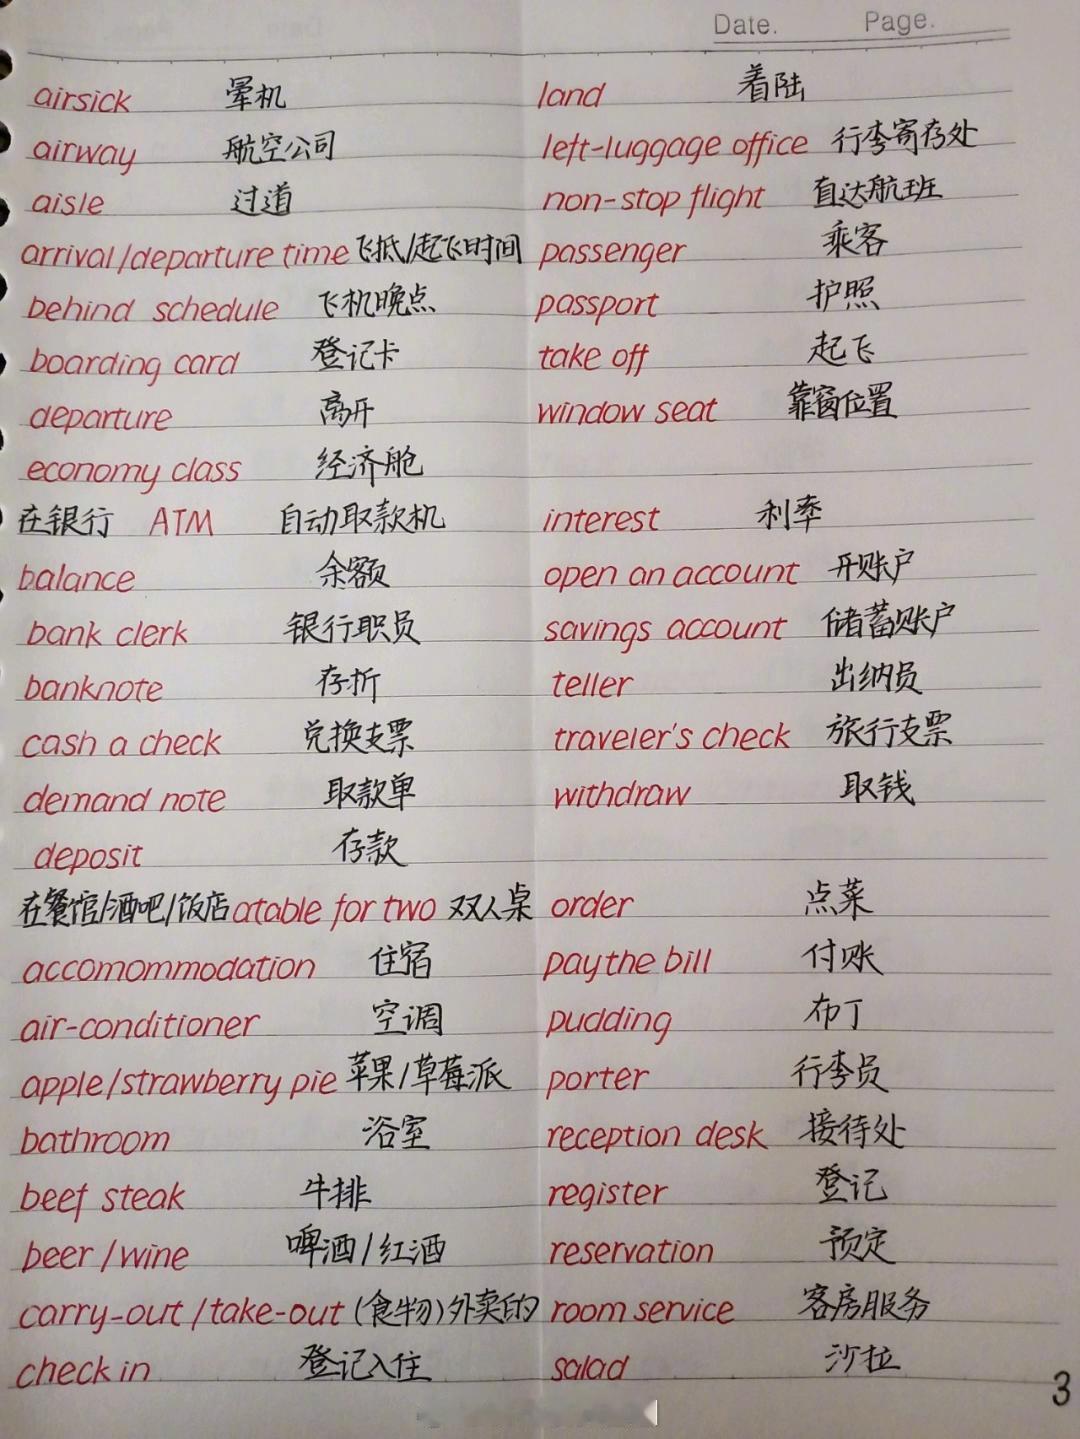 Date. Page.
airsick 晕机 land 着陆
airway 航空公司 left-luggage office 行李寄存处
aisle 过道 non-stop flight 直达航班
arrival/departure time 飞抵/起飞时间 passenger 乘客
behind schedule 飞机晚点 passport 护照
boarding card 登记卡 take off 起飞
departure 离开 window seat 靠窗位置
economy class 经济舱
在银行 ATM 自动取款机 interest 利率
balance 余额 open an account 开账户
bank clerk 银行职员 savings account 储蓄账户
banknote 存折 teller 出纳员
cash a check 兑换支票 traveler's check 旅行支票
demand note 取款单 withdraw 取钱
deposit 存款
在餐馆/酒吧/饭店 atable for two 双人桌 order 点菜
accomommodation 住宿 paythe bill 付账
air-conditioner 空调 pudding 布丁
apple/strawberry pie 苹果/草莓派 porter 行李员
bathroom 浴室 reception desk 接待处
beef steak 牛排 register 登记
beer/wine 啤酒/红酒 reservation 预定
carry-out/take-out (食物)外卖的 room service 客房服务
check in 登记入住 salad 沙拉
3